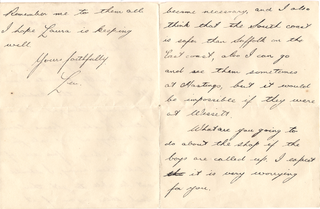 Remember me to them all
I hope Laura is keeping
well
Yours faithfully
Len.
become necessary, and I also
think that the South coast
is safer than Suffolk on the
East coast, also I can go
and see them sometimes
at Hastings, but it would
be impossible if they were
at
What are you going to
do about the shop if the
boys are called up. I expect
it is very worrying
for you.